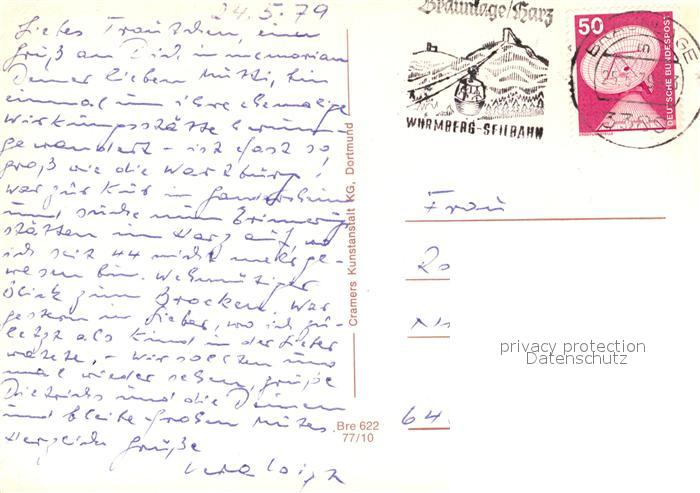 24.5.79
Liebes Trautchen, einen
Gruß an Dich in memoriam
Deiner lieben Mutti, bin
einmal um ihre ehemalige
Wirkungsstätte herum-
gewandert - ist fast so
groß wie die Wartburg!
War zur Kur in Gandersheim
und suche nun Erinnerungs-
stätten im Harz auf, wo
ich seit 44 nicht mehr ge-
wesen bin. Wehmütiger
Blick zum Brocken. War
gestern in Sieber, wo ich zu-
letzt als Kind in der Sieber
watete, - Wir sollten uns
mal wieder sehen, grüße
Dietrichs und die Deinen
und bleibe frohen Mutes.
Herzliche Grüße
Braunlage/Harz
WURMBERG-SEILBAHN
50
DEUTSCHE BUNDESPOST
Cramers Kunstanstalt KG, Dortmund
Bre 622
77/10
Frau
64
privacy protection
Datenschutz